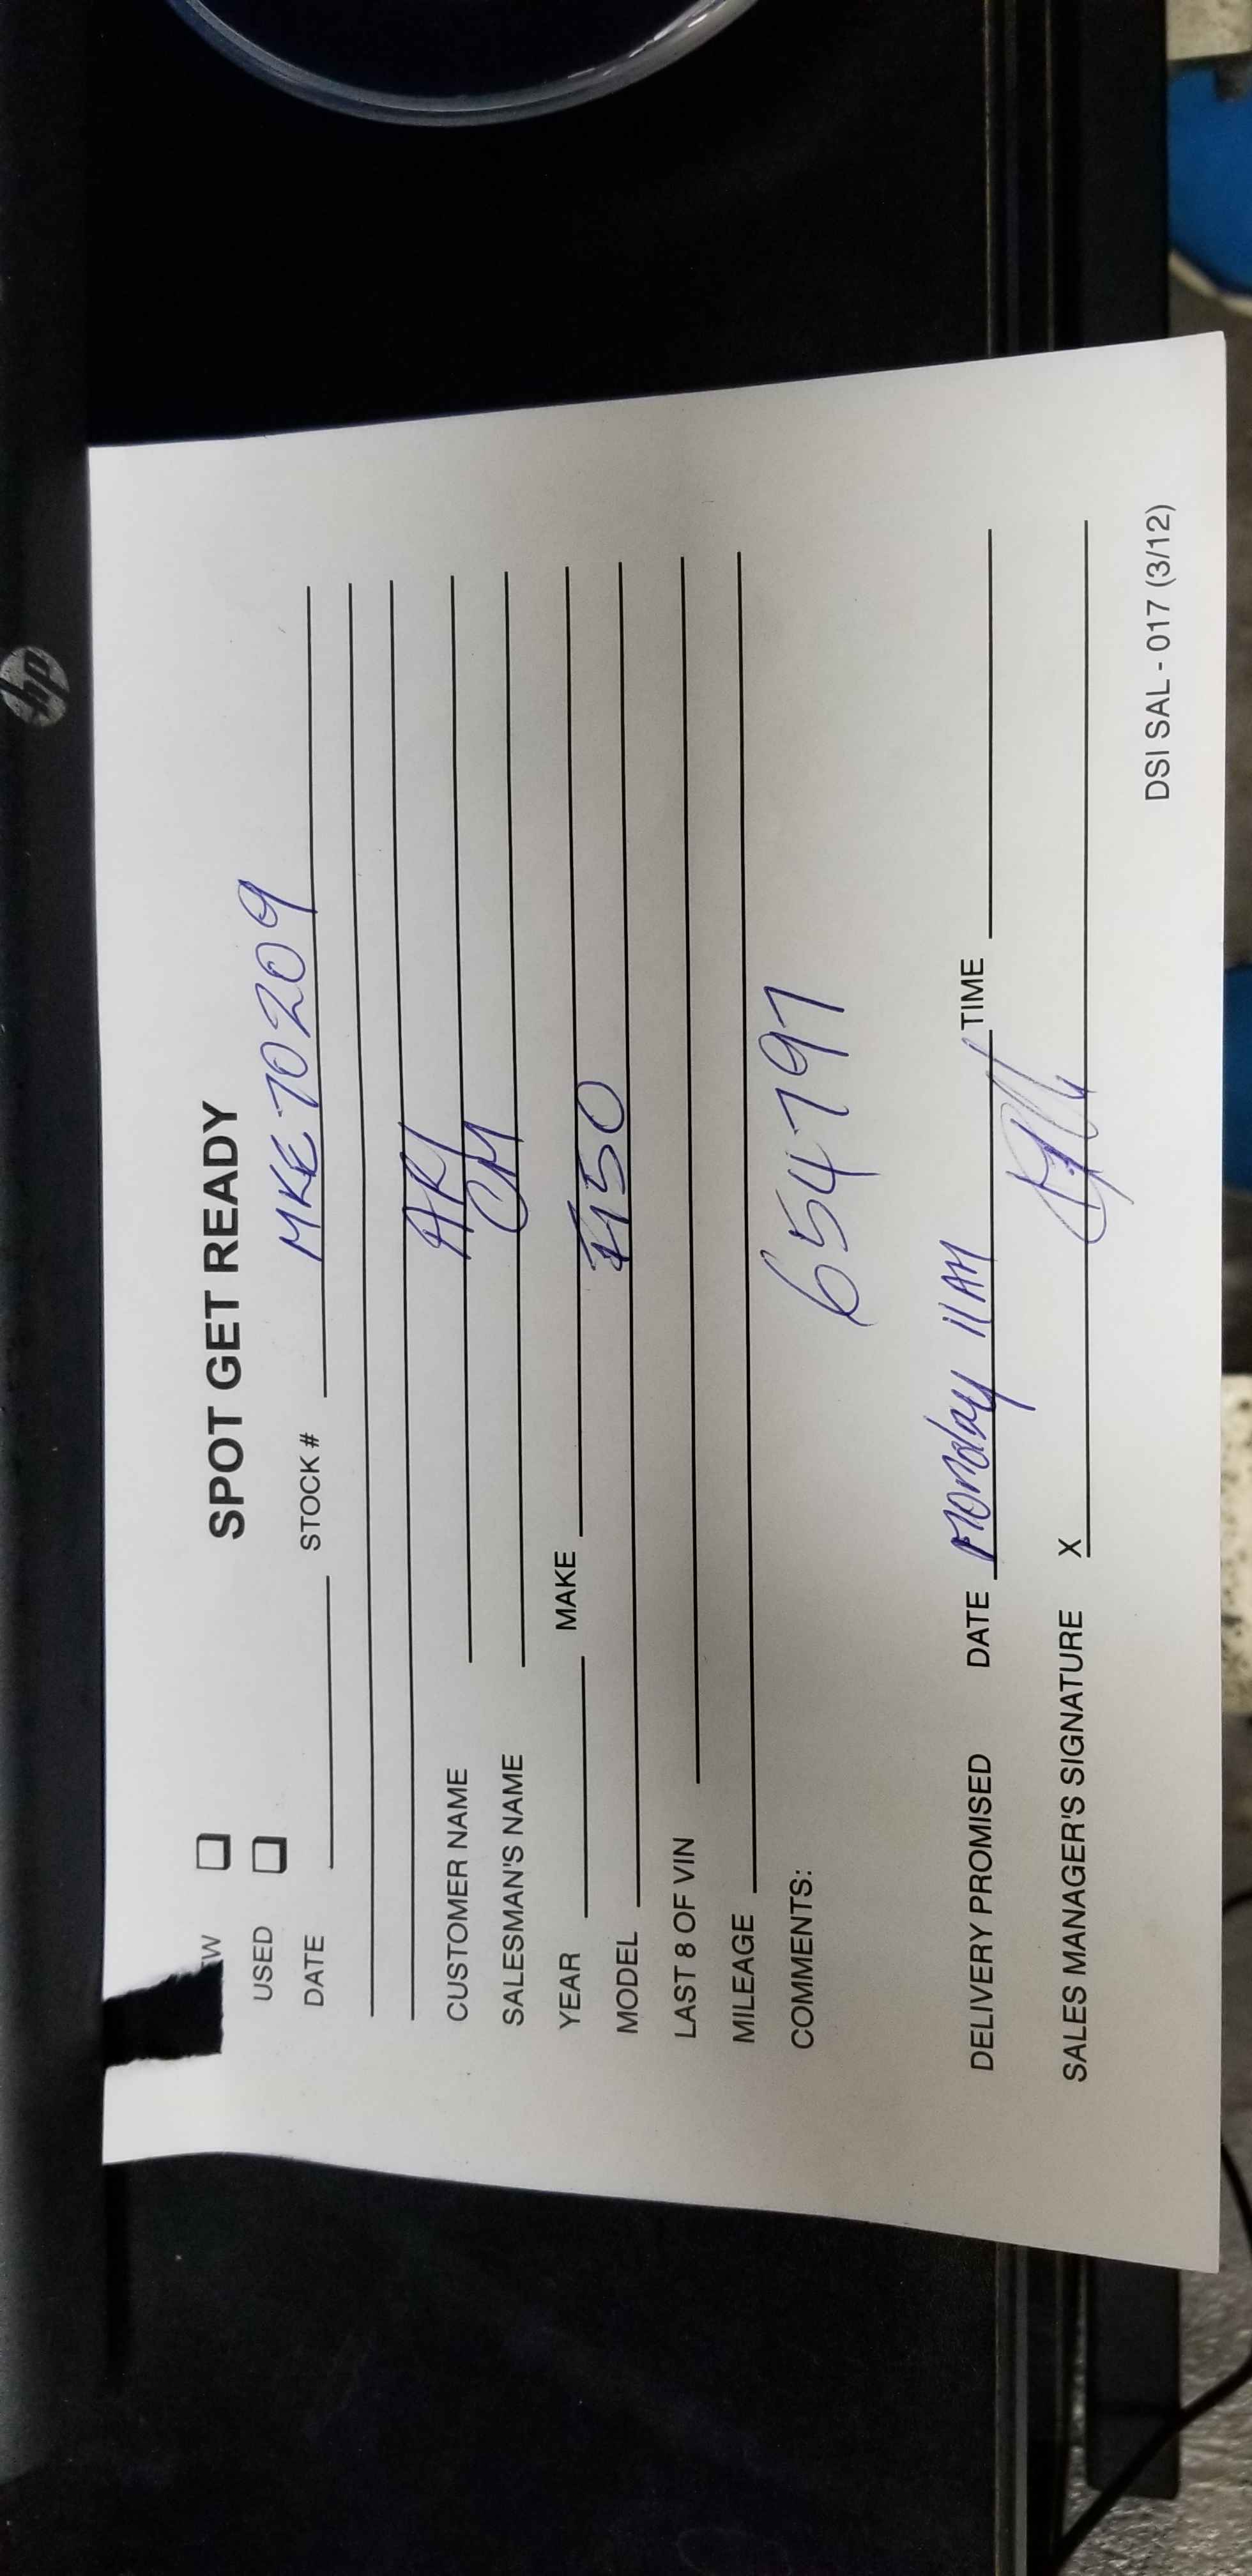 hp
SPOT GET READY
EW
USED
DATE STOCK # MKE70209
CUSTOMER NAME ARI
SALESMAN'S NAME CM
YEAR MAKE
MODEL F150
LAST 8 OF VIN
MILEAGE
COMMENTS:
654797
DELIVERY PROMISED DATE Monday 11 AM TIME
SALES MANAGER'S SIGNATURE X
DSI SAL - 017 (3/12)